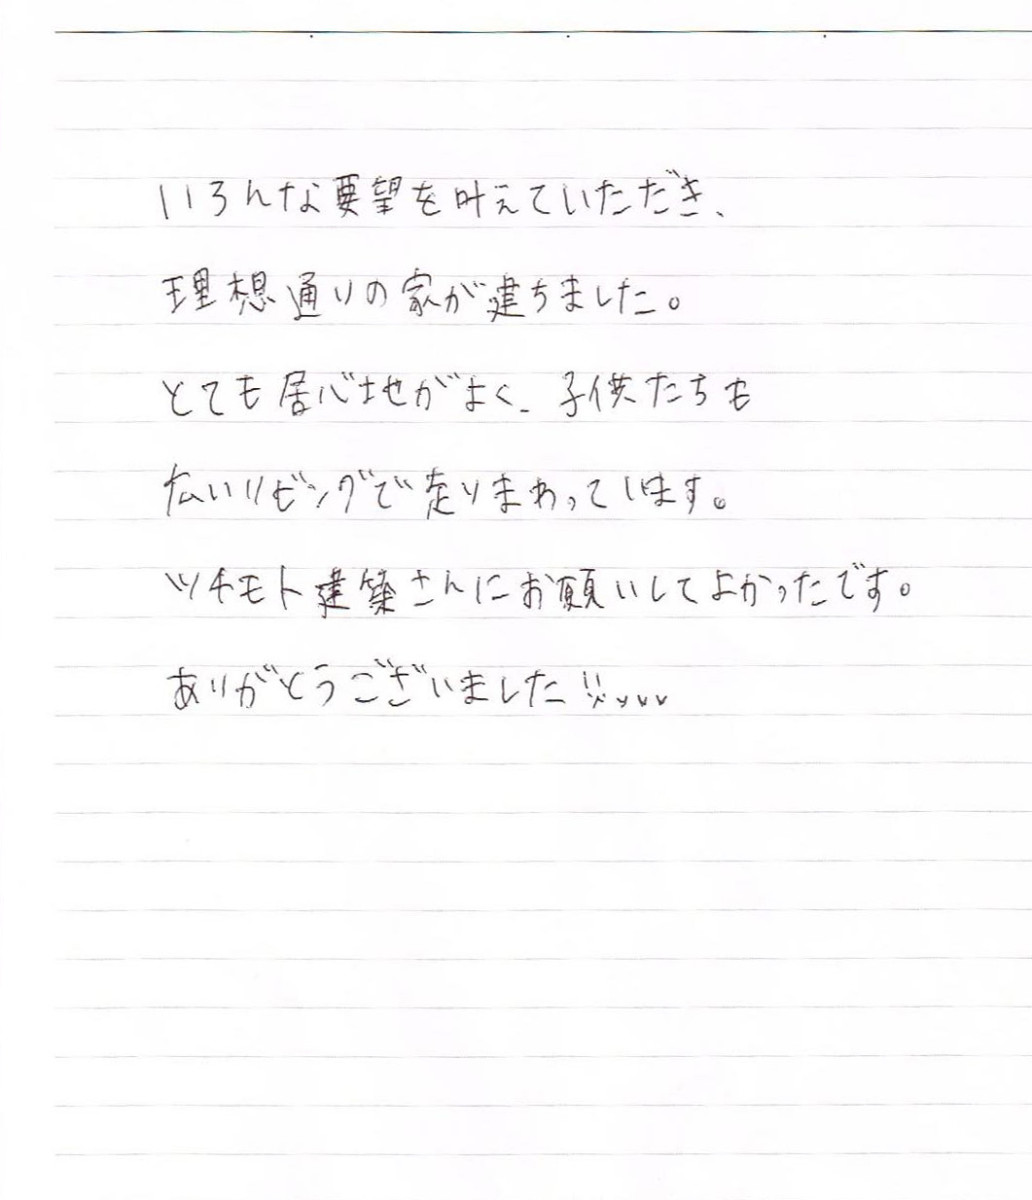 いろんな要望を叶えていただき、
理想通りの家が建ちました。
とても居心地がよく、子供たちも
広いリビングで走りまわっています。
ツチモト建築さんにお願いしてよかったです。
ありがとうございました!!